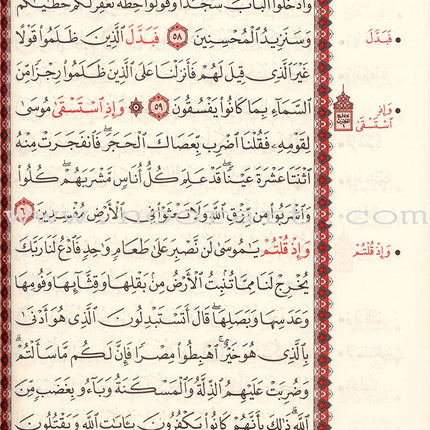 وَادْخُلُوا الْبَابَ سُجَّدًا وَقُولُوا حِطَّةٌ نَغْفِرْ لَكُمْ خَطَايَاكُمْ
وَسَنَزِيدُ الْمُحْسِنِينَ ٥٨ فَبَدَّلَ الَّذِينَ ظَلَمُوا قَوْلًا
غَيْرَ الَّذِي قِيلَ لَهُمْ فَأَنزَلْنَا عَلَى الَّذِينَ ظَلَمُوا رِجْزًا مِّنَ
السَّمَاءِ بِمَا كَانُوا يَفْسُقُونَ ٥٩ ۞ وَإِذِ اسْتَسْقَىٰ مُوسَىٰ
لِقَوْمِهِ فَقُلْنَا اضْرِب بِّعَصَاكَ الْحَجَرَ ۖ فَانفَجَرَتْ مِنْهُ
اثْنَتَا عَشْرَةَ عَيْنًا ۖ قَدْ عَلِمَ كُلُّ أُنَاسٍ مَّشْرَبَهُمْ ۖ كُلُوا
وَاشْرَبُوا مِن رِّزْقِ اللَّهِ وَلَا تَعْثَوْا فِي الْأَرْضِ مُفْسِدِينَ ٦٠
وَإِذْ قُلْتُمْ يَا مُوسَىٰ لَن نَّصْبِرَ عَلَىٰ طَعَامٍ وَاحِدٍ فَادْعُ لَنَا رَبَّكَ
يُخْرِجْ لَنَا مِمَّا تُنبِتُ الْأَرْضُ مِن بَقْلِهَا وَقِثَّائِهَا وَفُومِهَا
وَعَدَسِهَا وَبَصَلِهَا ۖ قَالَ أَتَسْتَبْدِلُونَ الَّذِي هُوَ أَدْنَىٰ
بِالَّذِي هُوَ خَيْرٌ ۚ اهْبِطُوا مِصْرًا فَإِنَّ لَكُم مَّا سَأَلْتُمْ ۗ
وَضُرِبَتْ عَلَيْهِمُ الذِّلَّةُ وَالْمَسْكَنَةُ وَبَاءُو بِغَضَبٍ مِّنَ
اللَّهِ ۗ ذَٰلِكَ بِأَنَّهُمْ كَانُوا يَكْفُرُونَ بِآيَاتِ اللَّهِ وَيَقْتُلُونَ
فَبَدَّلَ
وَإِذِ
اسْتَسْقَىٰ
وَإِذْ قُلْتُمْ